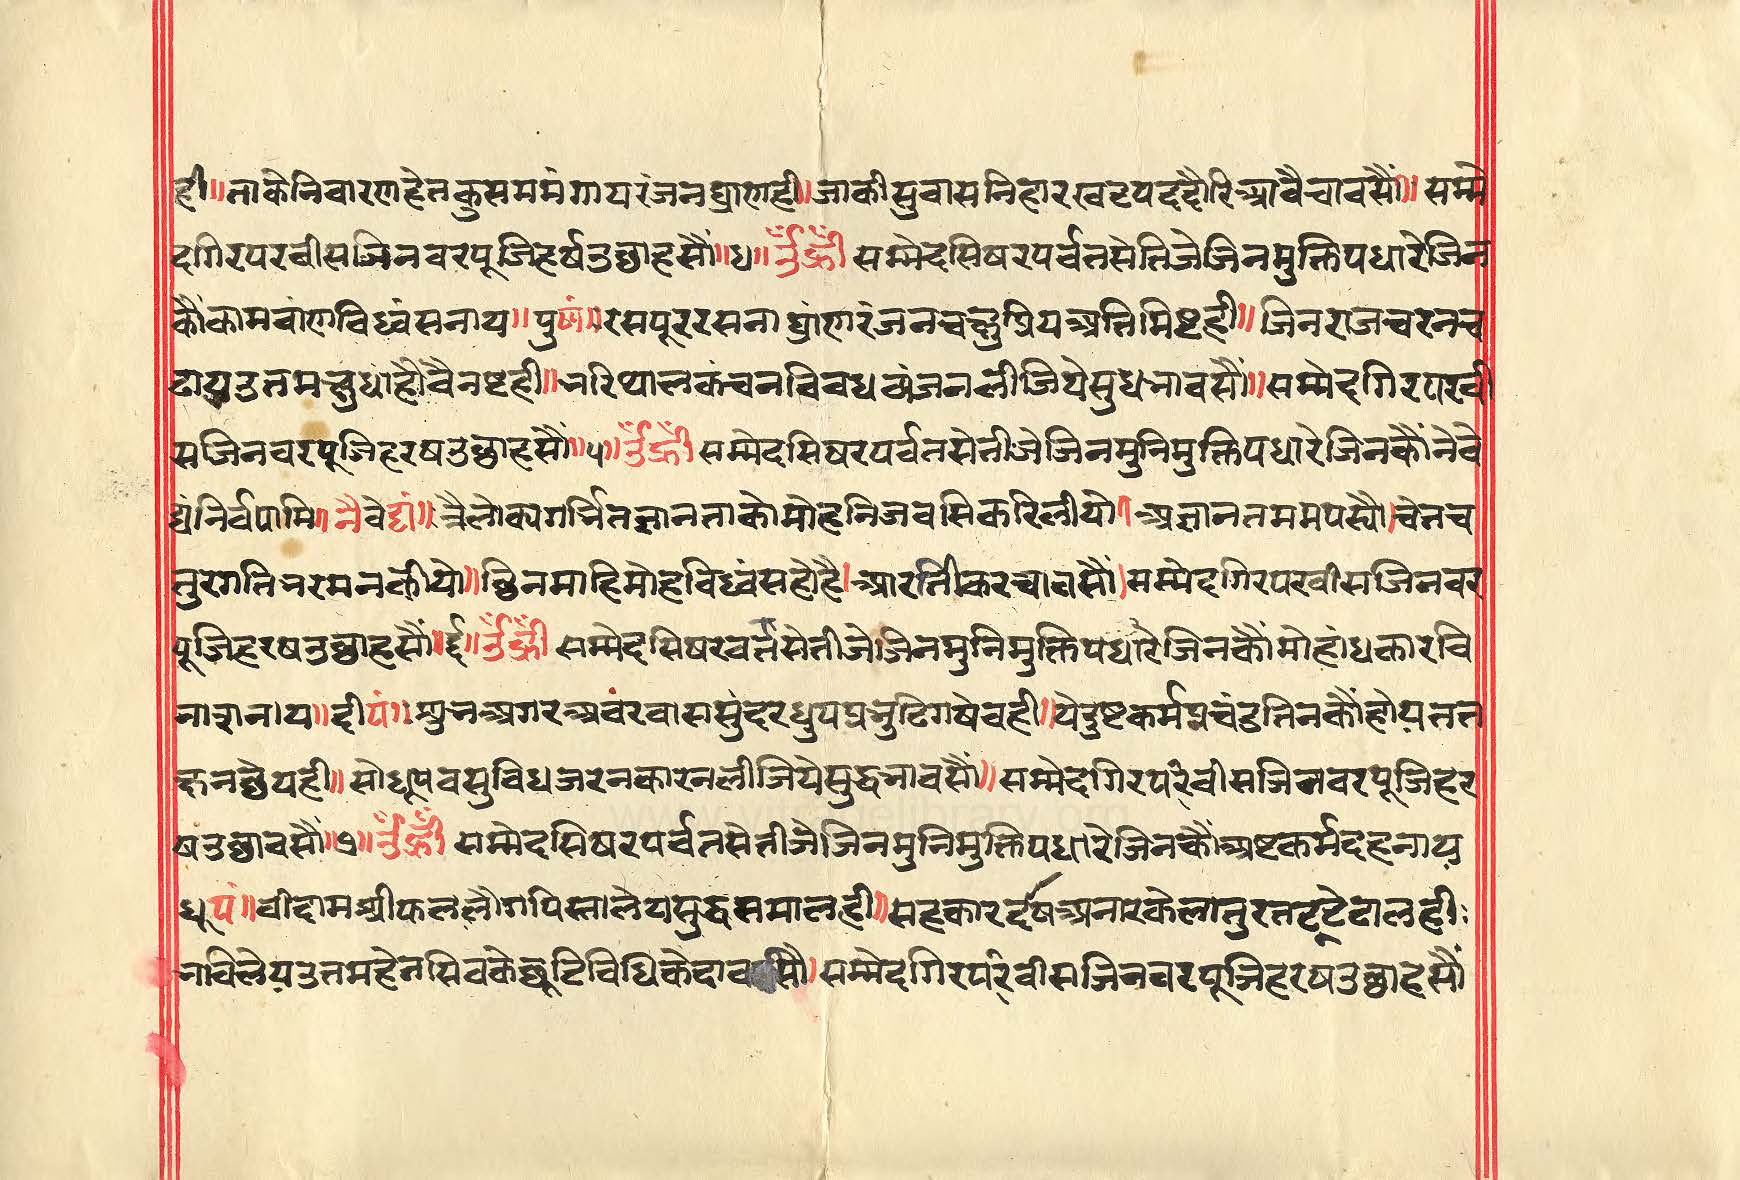 ही॥ताकेनिवारणहेतकुसममंगायरंजनघ्राणही।जाकीसुवासनिहारखटपददौरिआवैचावसौं॥सम्मे
दगिरपरवीसजिनवरपूजिहर्षउछाहसौं॥४॥ॐह्रीं सम्मेदसिषरपर्वतसेतिजेजिनमुक्तिपधारेजिन
कौंकामबांणविध्वंसनाय॥पुष्पं॥रसपूररसनाघ्रांणरंजनचछुप्रियअतिमिष्टही॥जिनराजचरनच
ढायउतमछुधाहौवैनष्टही॥भरिथालकंचनविवधव्यंजनलीजियेसुधभावसौं॥सम्मेदगिरपरवी
सजिनवरपूजिहरषउछाहसौं॥५॥ॐह्रीं सम्मेदसिषरपर्वतसेतीजेजिनमुनिमुक्तिपधारेजिनकौंनेवे
द्यंनिर्वपामि।नैवेद्यं॥त्रैलोक्यगर्भितज्ञानताकोमोहनिजवसिकरिलीयो।अज्ञानतममपस्यौ।चेतच
तुरगतिभरमनकीयो॥छिनमाहिमोहविध्वंसहोहै।आरतीकरचावसौं।सम्मेदगिरपरवीसजिनवर
पूजिहरषउछाहसौं॥६॥ॐह्रीं सम्मेदसिषरवर्तसेतीजेजिनमुनिमुक्तिपधारेजिनकौंमोहांधकारवि
नाशनाय॥दीपं॥सुभअगरअवंरवाससुंदरधुपप्रभुढिगषेवही॥येदुष्टकर्मप्रचंडतिनकौंहोयतत
छनछेयही॥सोधूपवसुविधजरनकारनलीजियेसुद्धभावसौं॥सम्मेदगिरपरवीसजिनवरपूजिहर
षउछावसौं॥७॥ॐह्रीं सम्मेदसिषरपर्वतसेतीजेजिनमुनिमुक्तिपधारेजिनकौंअष्टकर्मदहनाय
धूपं॥वीदामश्रीफललौंगपिस्तालेयसुद्धसमालही॥सहकारदाषअनारकेलातुरतटूटेडालही॥
भविलेयउतमहेतसिवकेछूटिविधिकेदावसौं।सम्मेदगिरपरवीसजिनवरपूजिहरषउछाहसौं